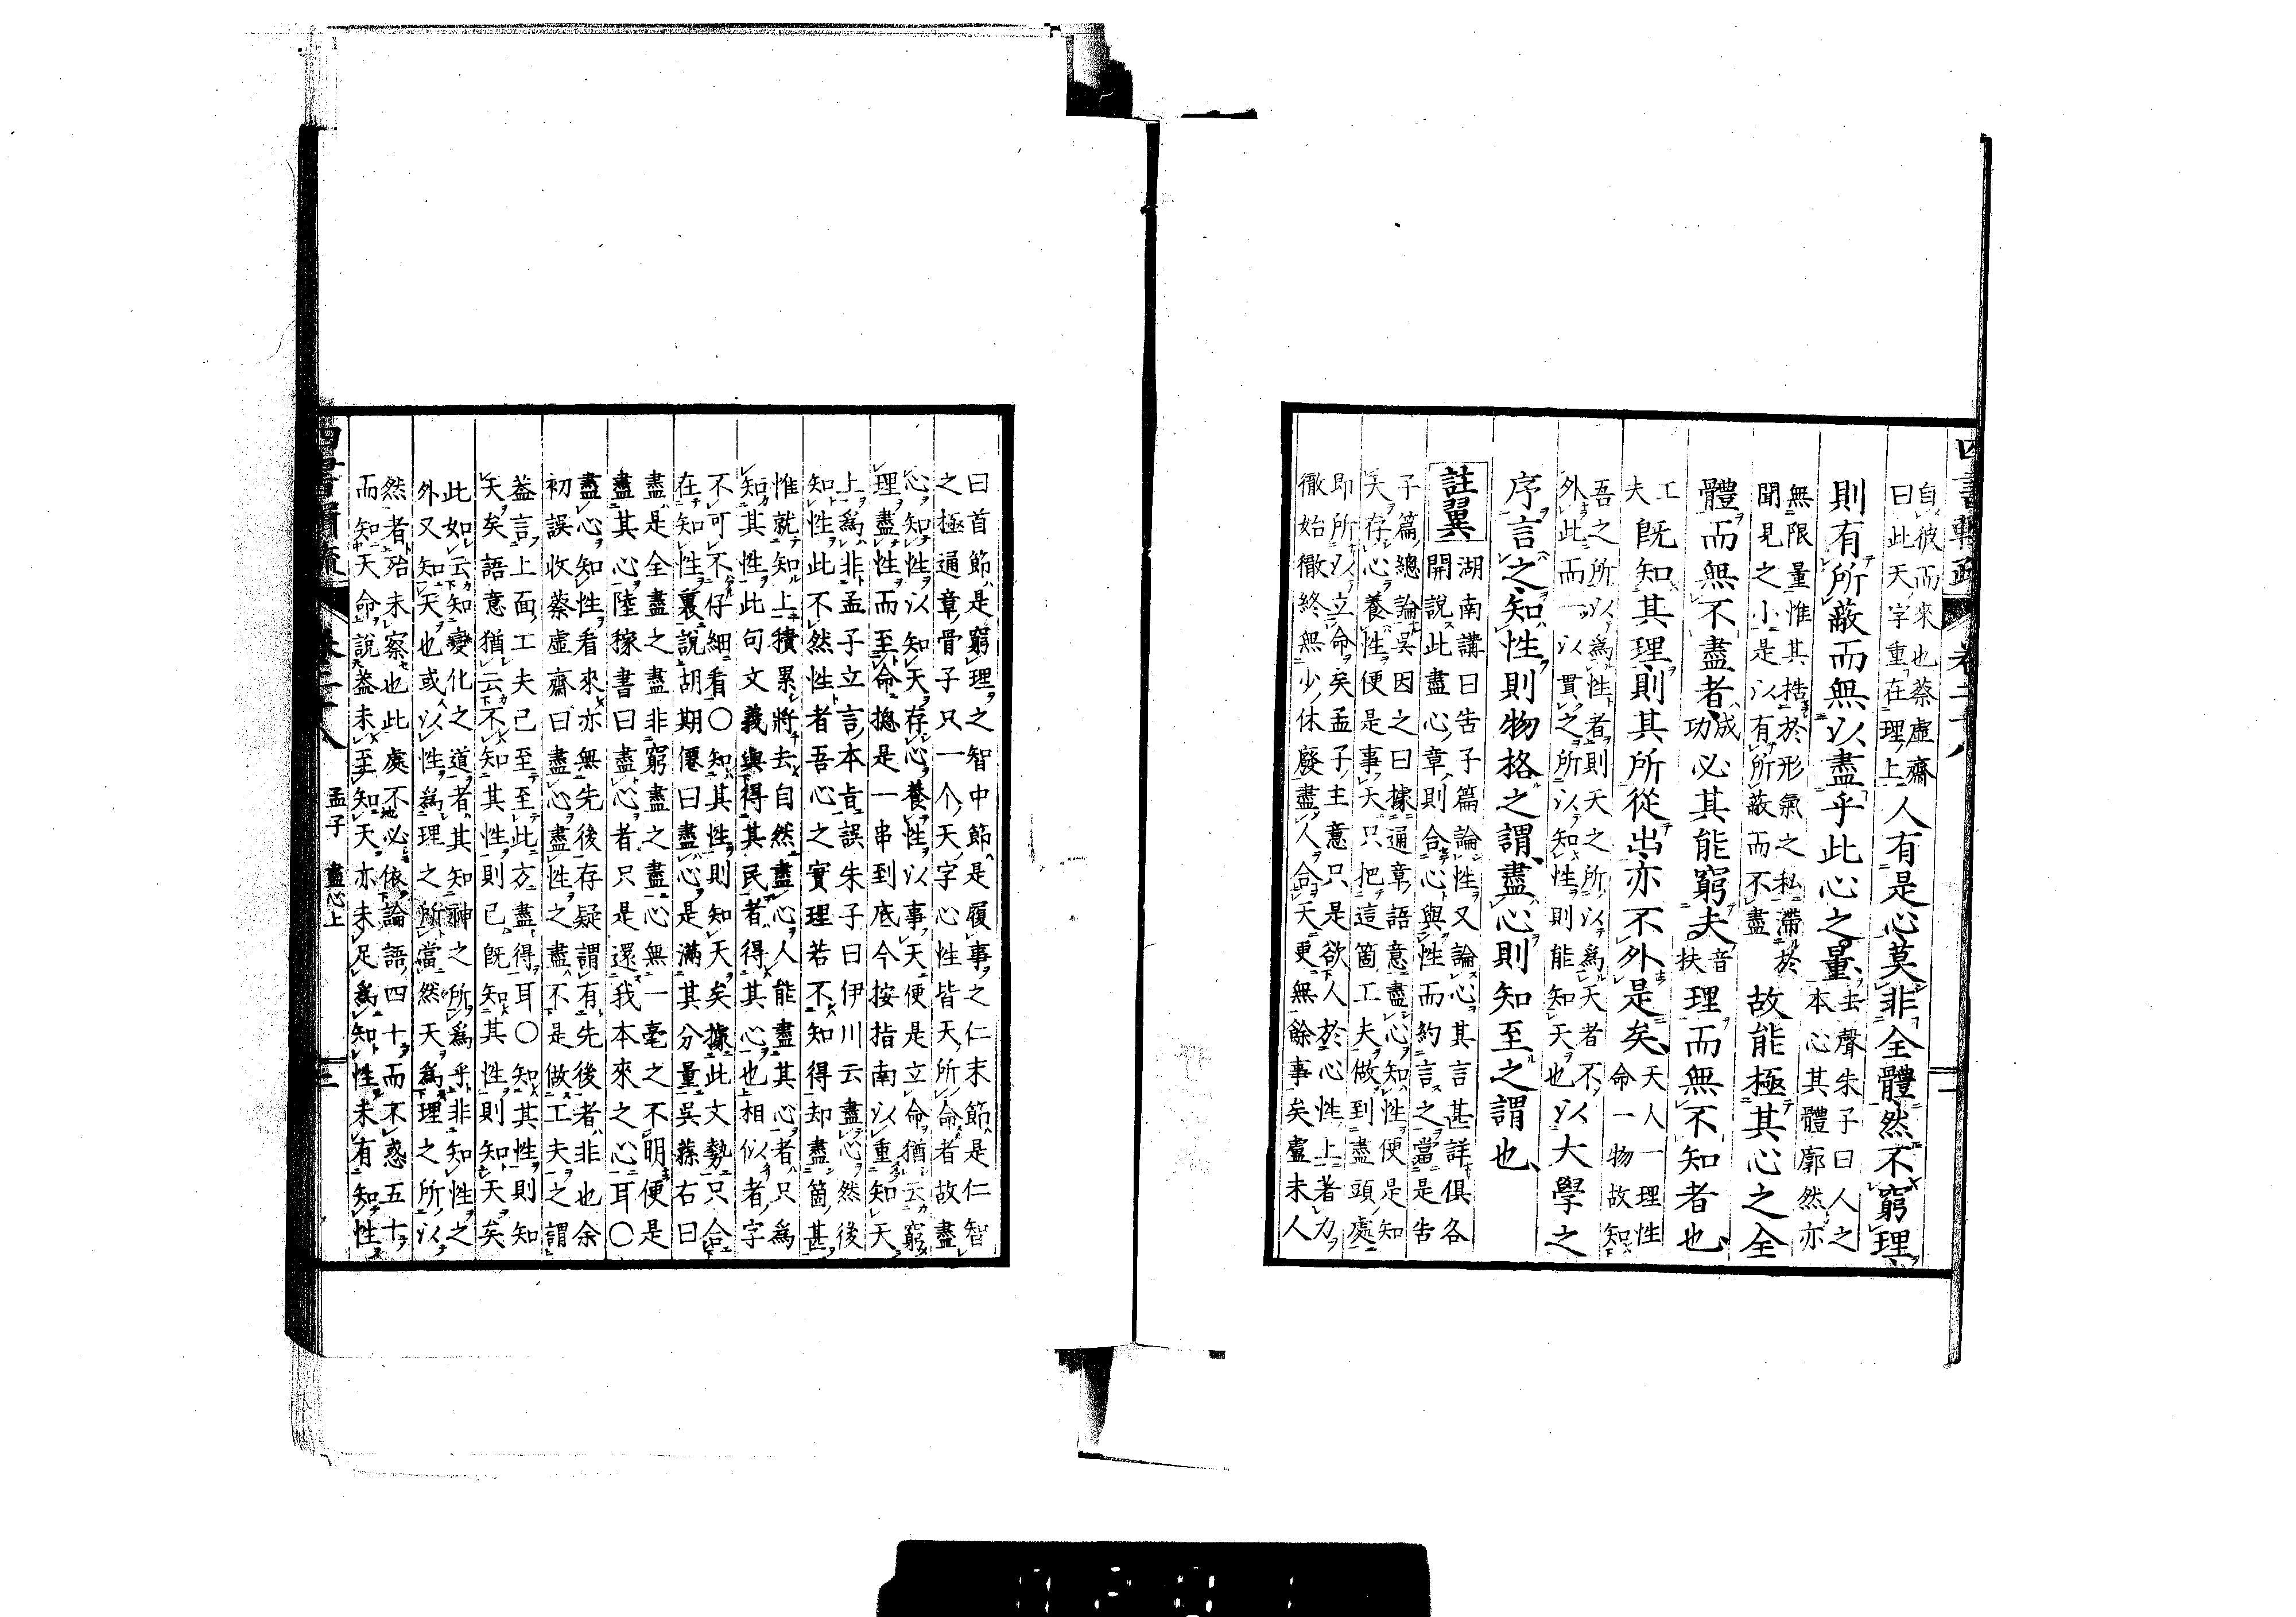 四書輯疏 卷二十八 二
自彼而來也蔡虛齋
曰此天字重在理上
人有是心莫非全體然不窮理
則有所蔽而無以盡乎此心之量
去聲朱子曰人之
本心其體廓然亦
無限量惟其梏於形氣之私滯於
聞見之小是以有所蔽而不盡
故能極其心之全
體而無不盡者
成
功
必其能窮夫
音
扶
理而無不知者也
工
夫
既知其理則其所從出亦不外是矣
天人一理性
命一物故知
吾之所以爲性者則天之所以爲天者不
外此而一以貫之所以知性則能知天也
以大學之
序言之知性則物格之謂盡心則知至之謂也
註翼
湖南講曰告子篇論性又論心其言甚詳俱各
開說此盡心章則合心與性而約言之當是告
子篇總論吳因之曰據通章語意盡心知性便是知
天存心養性便是事天只把這箇工夫做到盡頭處
即所以立命矣孟子主意只是欲人於心性上著力
徹始徹終無少休廢盡人合天更無餘事矣盧未人
曰首節是窮理之智中節是履事之仁末節是仁智
之極通章骨子只一个天字心性皆天所命者故盡
心知性以知天存心養性以事天便是立命猶云窮
理盡性而至命摠是一串到底今按指南以重知天
上爲非孟子立言本旨誤朱子曰伊川云盡心然後
知性此不然性者吾心之實理若不知得却盡箇甚
惟就知上積累將去自然盡心人能盡其心者只爲
知其性此句文義與得其民者得其心也相似者字
不可不仔細看○知其性則知天矣據此文勢只合
在知性裏說胡期僊曰盡心是滿其分量吳蓀右曰
盡是全盡之盡非窮盡之盡心無一毫之不明便是
盡其心陸稼書曰盡心者只是還我本來之心耳○
盡心知性看來亦無先後存疑謂有先後者非也余
初誤收蔡虛齋曰盡心盡性之盡不是做工夫之謂
蓋言上面工夫已至至此方盡得耳○知其性則知
天矣語意猶云不知其性則已既知其性則知天矣
此如云知變化之道者其知神之所爲乎非知性之
外又知天也或以性爲理之所當然天爲理之所以
然者殆未察也此處不必依論語四十而不惑五十
而知天命說蓋未至知天亦未足爲知性未有知性
孟子 盡心上 三